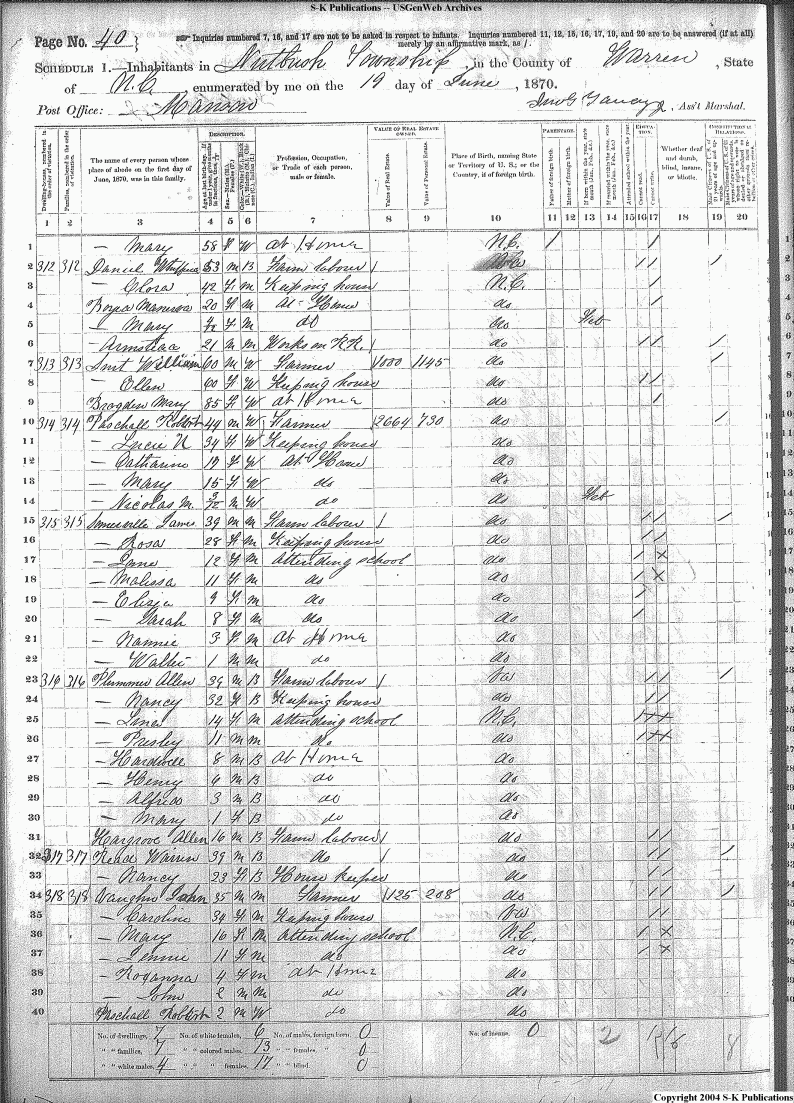 S-K Publications -- USGenWeb Archives
Page No. 40 } Inquiries numbered 7, 16, and 17 are not to be asked in respect to infants. Inquiries numbered 11, 12, 15, 16, 17, 19, and 20 are to be answered (if at all)
merely by an affirmative mark, as /.
SCHEDULE 1.—Inhabitants in Nutbush Township, in the County of Warren, State
of N.C., enumerated by me on the 19 day of June, 1870.
Post Office: Manson Ass't Marshal.
DESCRIPTION. VALUE OF REAL ESTATE OWNED. PARENTAGE.
The name of every person whose place of abode on the first day of June, 1870, was in this family.
Profession, Occupation, or Trade of each person, male or female.
Value of Real Estate.
Value of Personal Estate.
Place of Birth, naming State or Territory of U. S.; or the Country, if of foreign birth.
Father of foreign birth.
Mother of foreign birth.
Whether deaf and dumb, blind, insane, or idiotic.
1 2 3 4 5 6 7 8 9 10 11 12 13 14 15 16 17 18 19 20
1 — Mary 58 F W At Home N.C. / /
2 312 312 Daniel 53 M B Farm labour / N.C. / / /
3 — Clora 42 F M Keeping house N.C. /
4 20 F M At Home do /
5 — Mary F M do do Feb
6 21 M M Works on R.R. / do / / /
7 313 313 William 60 M W Farmer 1000 1145 do /
8 — Ellen 60 F W Keeping house do / /
9 Brogden Mary 85 F W At Home do /
10 314 314 Paschall Robert 44 M W Farmer 2664 730 do /
11 — Lucie N 34 F W Keeping house do
12 — Catharine 17 F W At Home do
13 — Mary 15 F W do do
14 — Nicolas M. 3/12 M W do do Feb
15 315 315 Somerville James 39 M M Farm labour / do / / /
16 — Rosa 28 F M Keeping house do / /
17 — Jane 12 F M Attending school do / X
18 — Malissa 11 F M do do / X
19 — Eliza 9 F M do do /
20 — Sarah 8 F M do do /
21 — Nannie 3 F M At Home do
22 — Walter 1 M M do do
23 316 316 Plummer Allen 39 M B Farm labour / Va / / /
24 — Nancy 32 F B Keeping house do / /
25 14 F M Attending school N.C. / X X
26 — Presley 11 M M do do / X X
27 — Hardwell 8 M B At Home do
28 — Henry 6 M B do do
29 — Alfred 3 M B do do
30 — Mary 1 F B do do
31 Hargrove Allen 16 M B Farm labour / do / /
32 317 317 Read Warren 39 M B do / do / / /
33 — Nancy 23 F B House keeper do / /
34 318 318 Vaughn John 35 M M Farmer 125 208 do / / /
35 — Caroline 39 F M Keeping house Va / /
36 — Mary 16 F M Attending school N.C. / X
37 — Jennie 11 F M do do / X
38 — Roxanna 4 F M At Home do
39 — John 2 M M do do
40 Paschall Robert 2 M W do do
No. of dwellings, 7 No. of white females, 6 No. of males, foreign born, 0 No. of insane, 0
" " families, 7 " " colored males, 13 " " females, " 0
" " white males, 4 " " " females, 17 " " blind, 0
2 16 8
Copyright 2004 S-K Publications